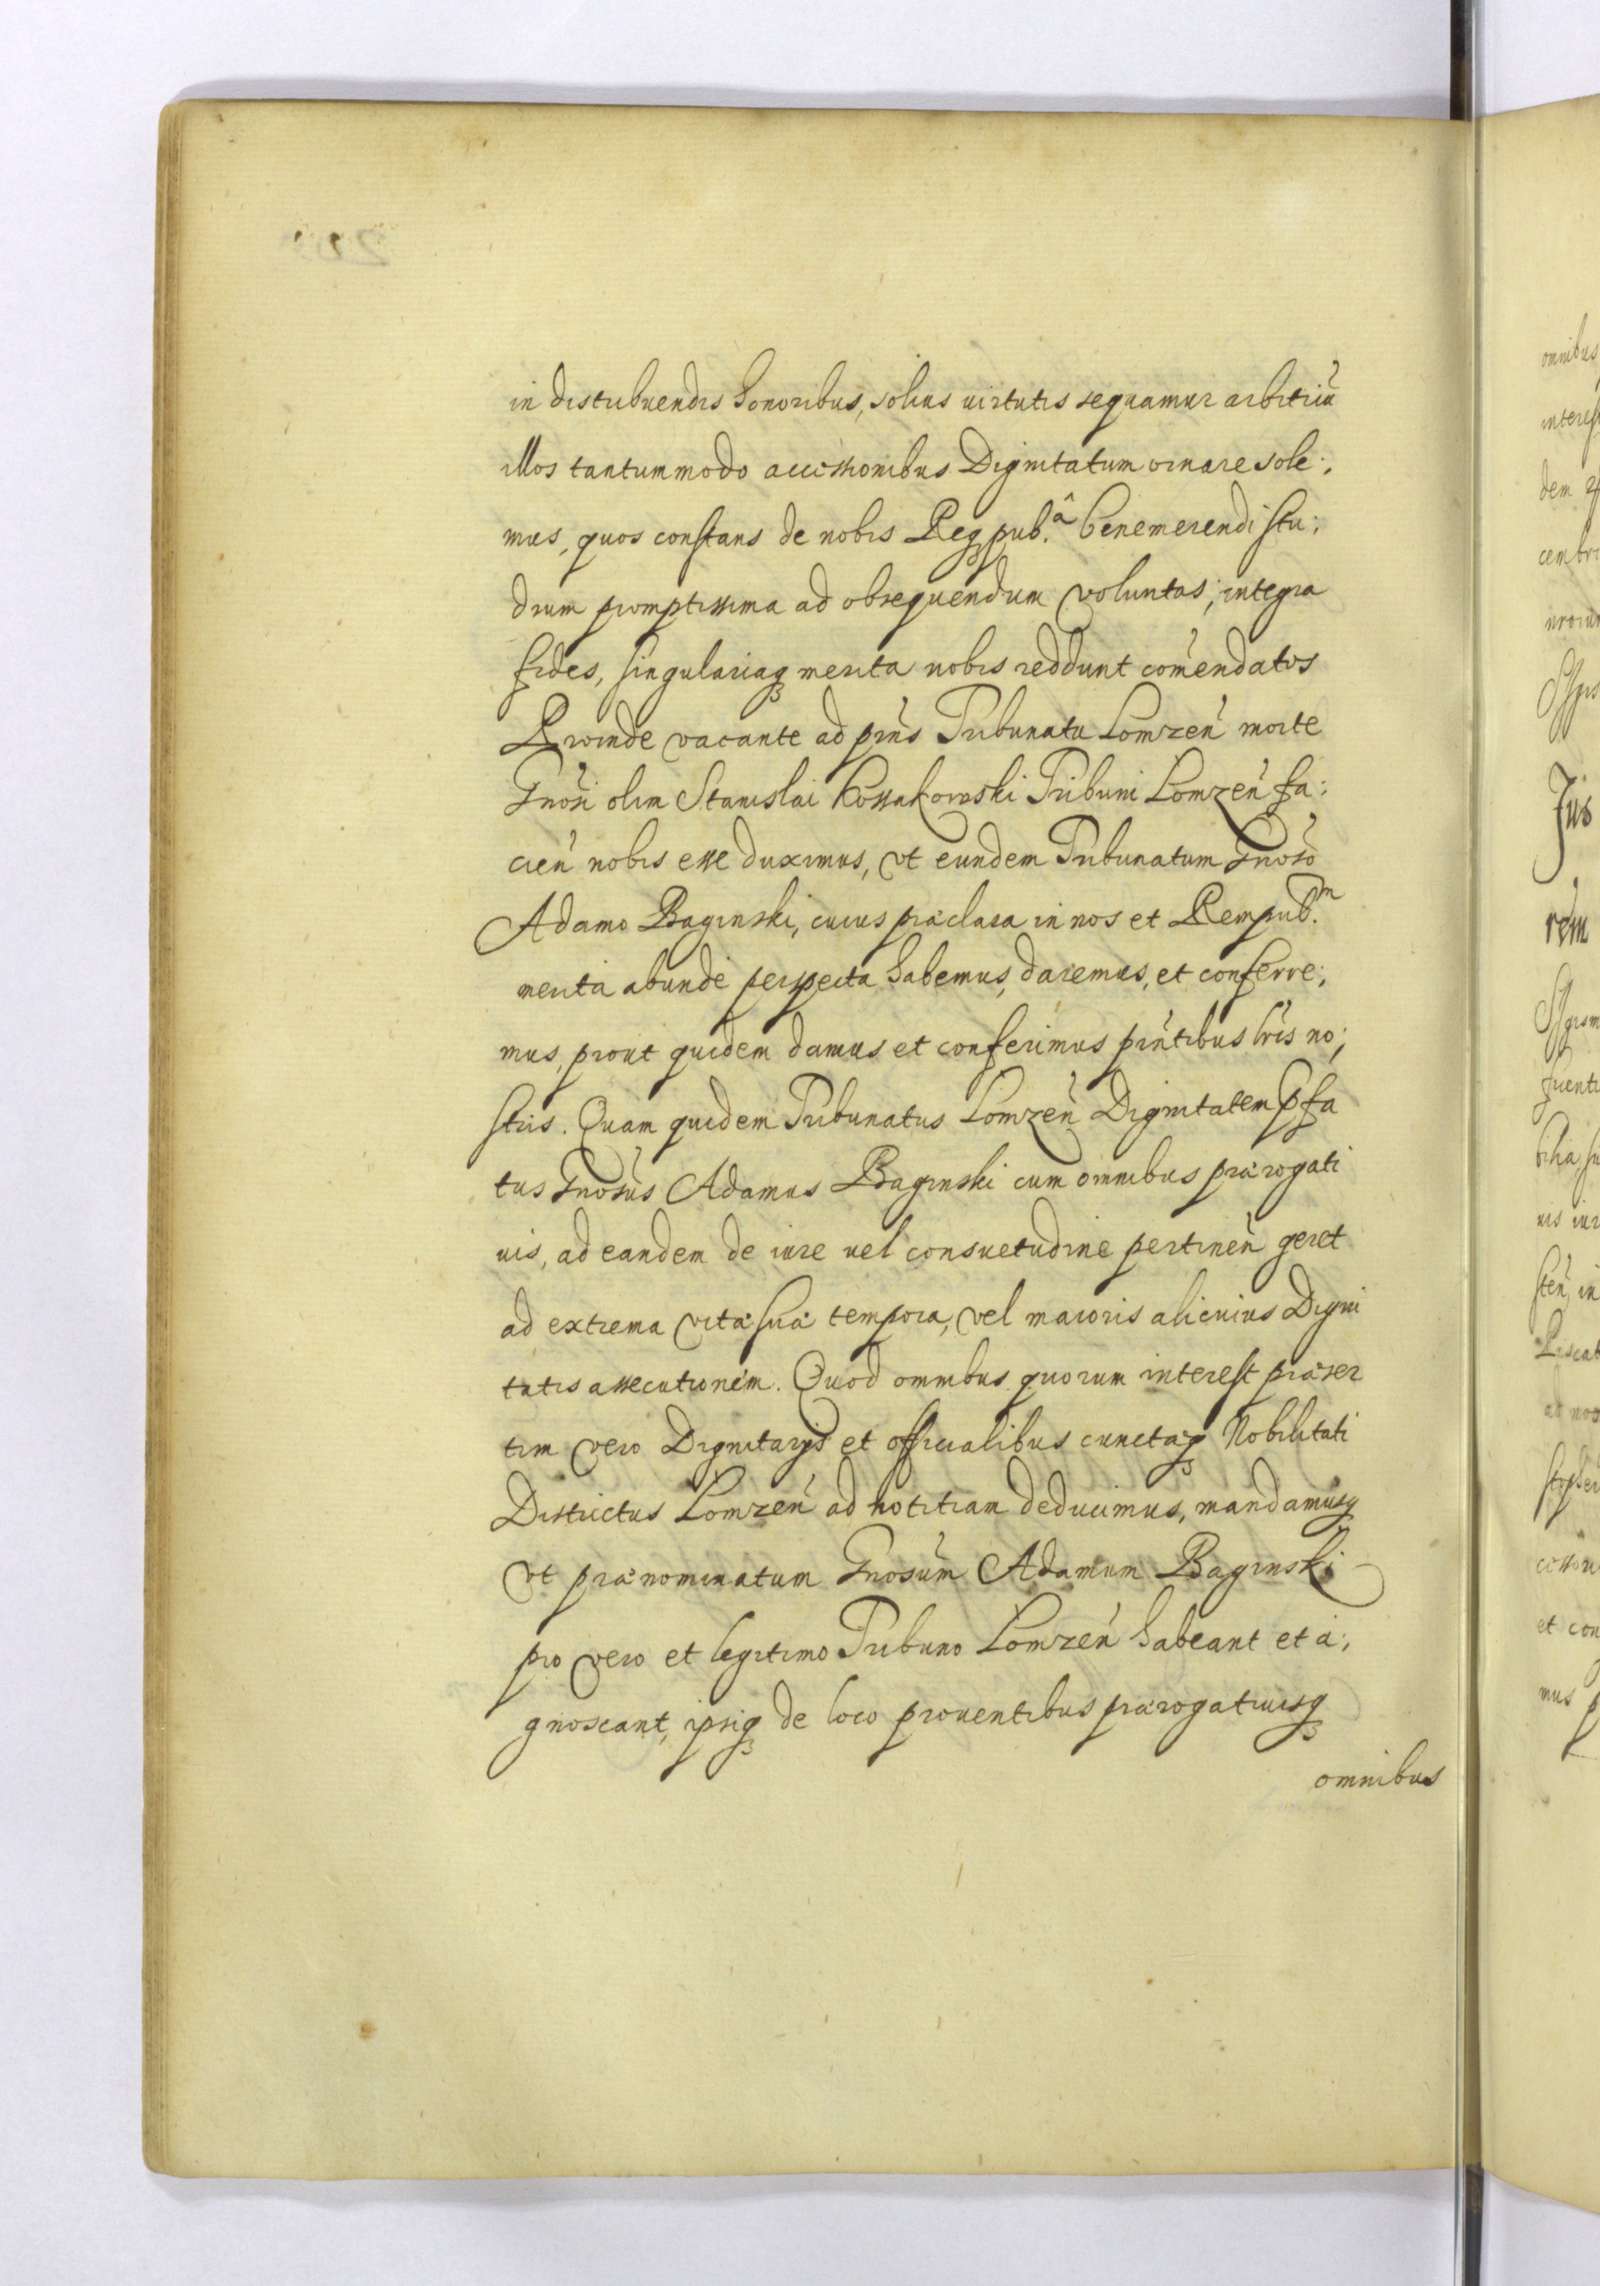 in distribuendis honoribus, solius uirtutis sequamur arbitriũ
illos tantummodo accessionibus Dignitatum ornare sole:
mus, quos constans de nobis Reqꝫ pub.â benemerendi stu:
dium promptissima ad obsequendum voluntas, integra
fides, singulariaqꝫ merita nobis reddunt com̃endatos
Proinde vacante ad pñs Tribunatu Lomzeñ morte
Gñosi olim Stanislai Kossakowski Tribuni Lomzeñ fa:
cieñ nobis esse duximus, vt eundem Tribunatum Gñoso
Adamo Baginski, cuius præclara in nos et Rempub.m
merita abundè perspecta habemus, daremus, et conferre:
mus, prout quidem damus et conferimus pñtibus lr̃is no:
stris. Quam quidem Tribunatus Lomzeñ Dignitatem p̃fa
tus Gñosus Adamus Baginski cum omnibus prærogati
uis, ad eandem de iure uel consuetudine pertineñ geret
ad extrema vitæ suæ tempora, vel maioris alicuius Digni
tatis assecutionem. Quod omnibus quorum interest præser
tim vero Dignitarijs et officialibus cunctæqꝫ Nobilitati
Districtus Lomzeñ ad notitiam deducimus, mandamusqꝫ
vt prænominatum Gñosum Adamum Baginski
pro vero et legitimo Tribuno Lomzeñ habeant et a:
gnoscant, ipsiqꝫ de loco prouentibus prærogatiuisqꝫ
omnibus
omnibus
interes
dem
cembri
Jus
rem
fuenti
uis iur
steñ in
et con
mus p